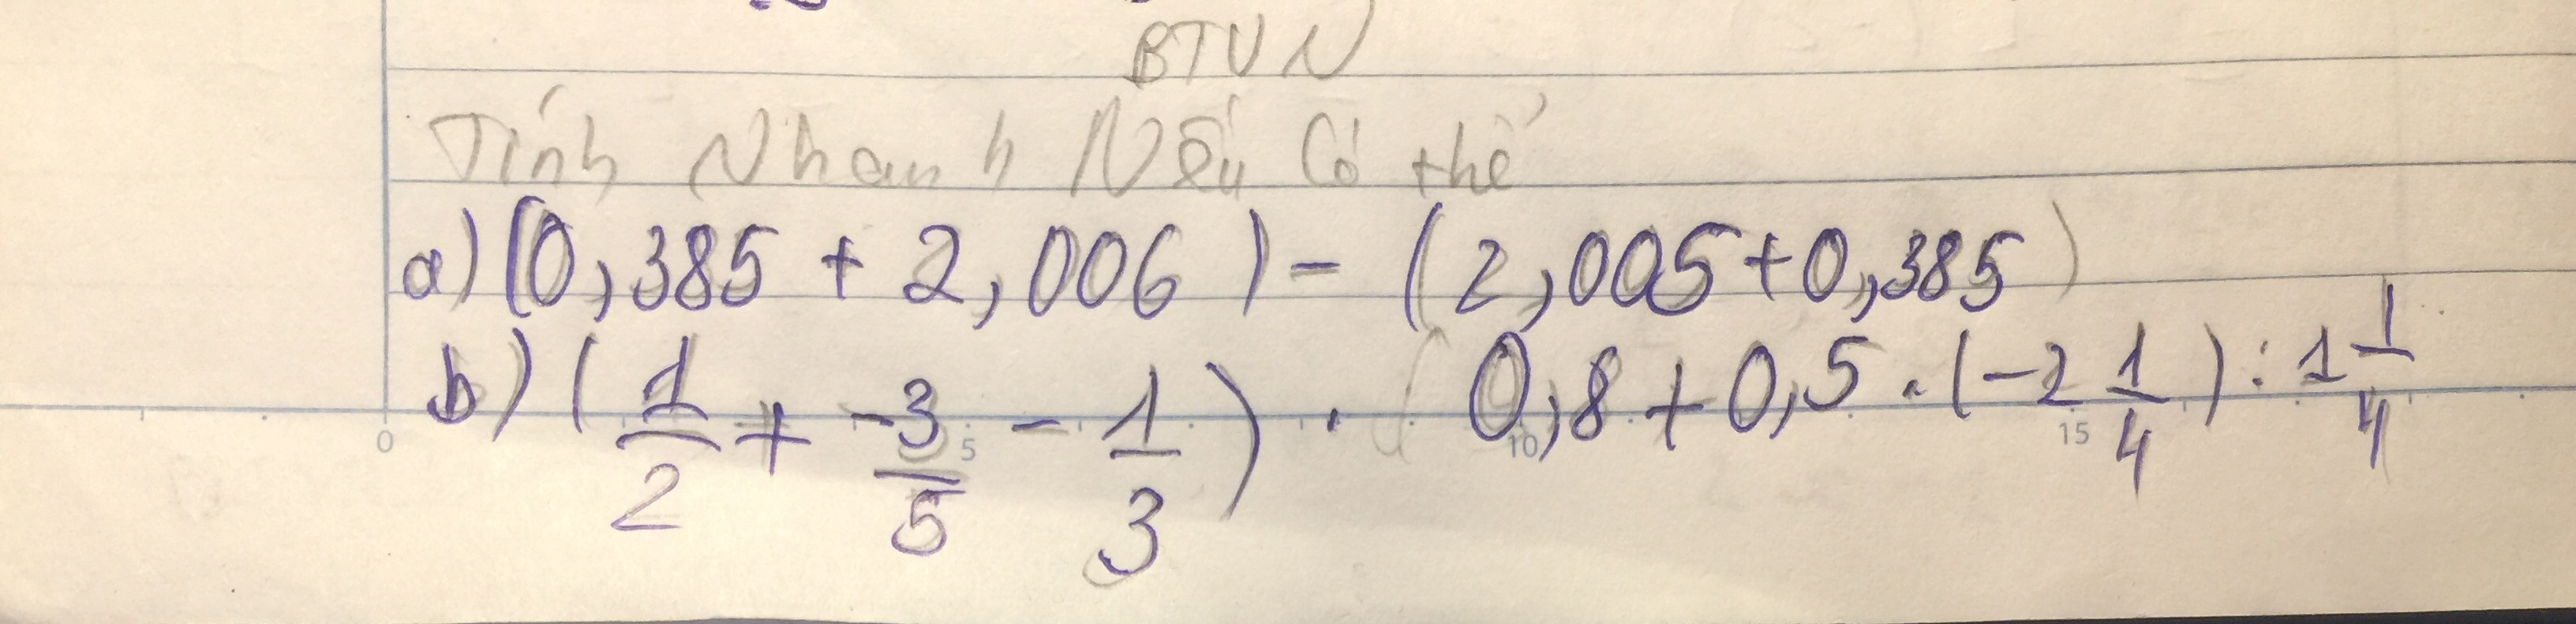 BTVN
Tính Nhanh Nếu Có thể
a) (0,385 + 2,006) - (2,005+0,385)
b) (1/2 + -3/5 - 1/3) . 0,8 + 0,5 . (-2 1/4) : 1 1/4
0 5 10 15